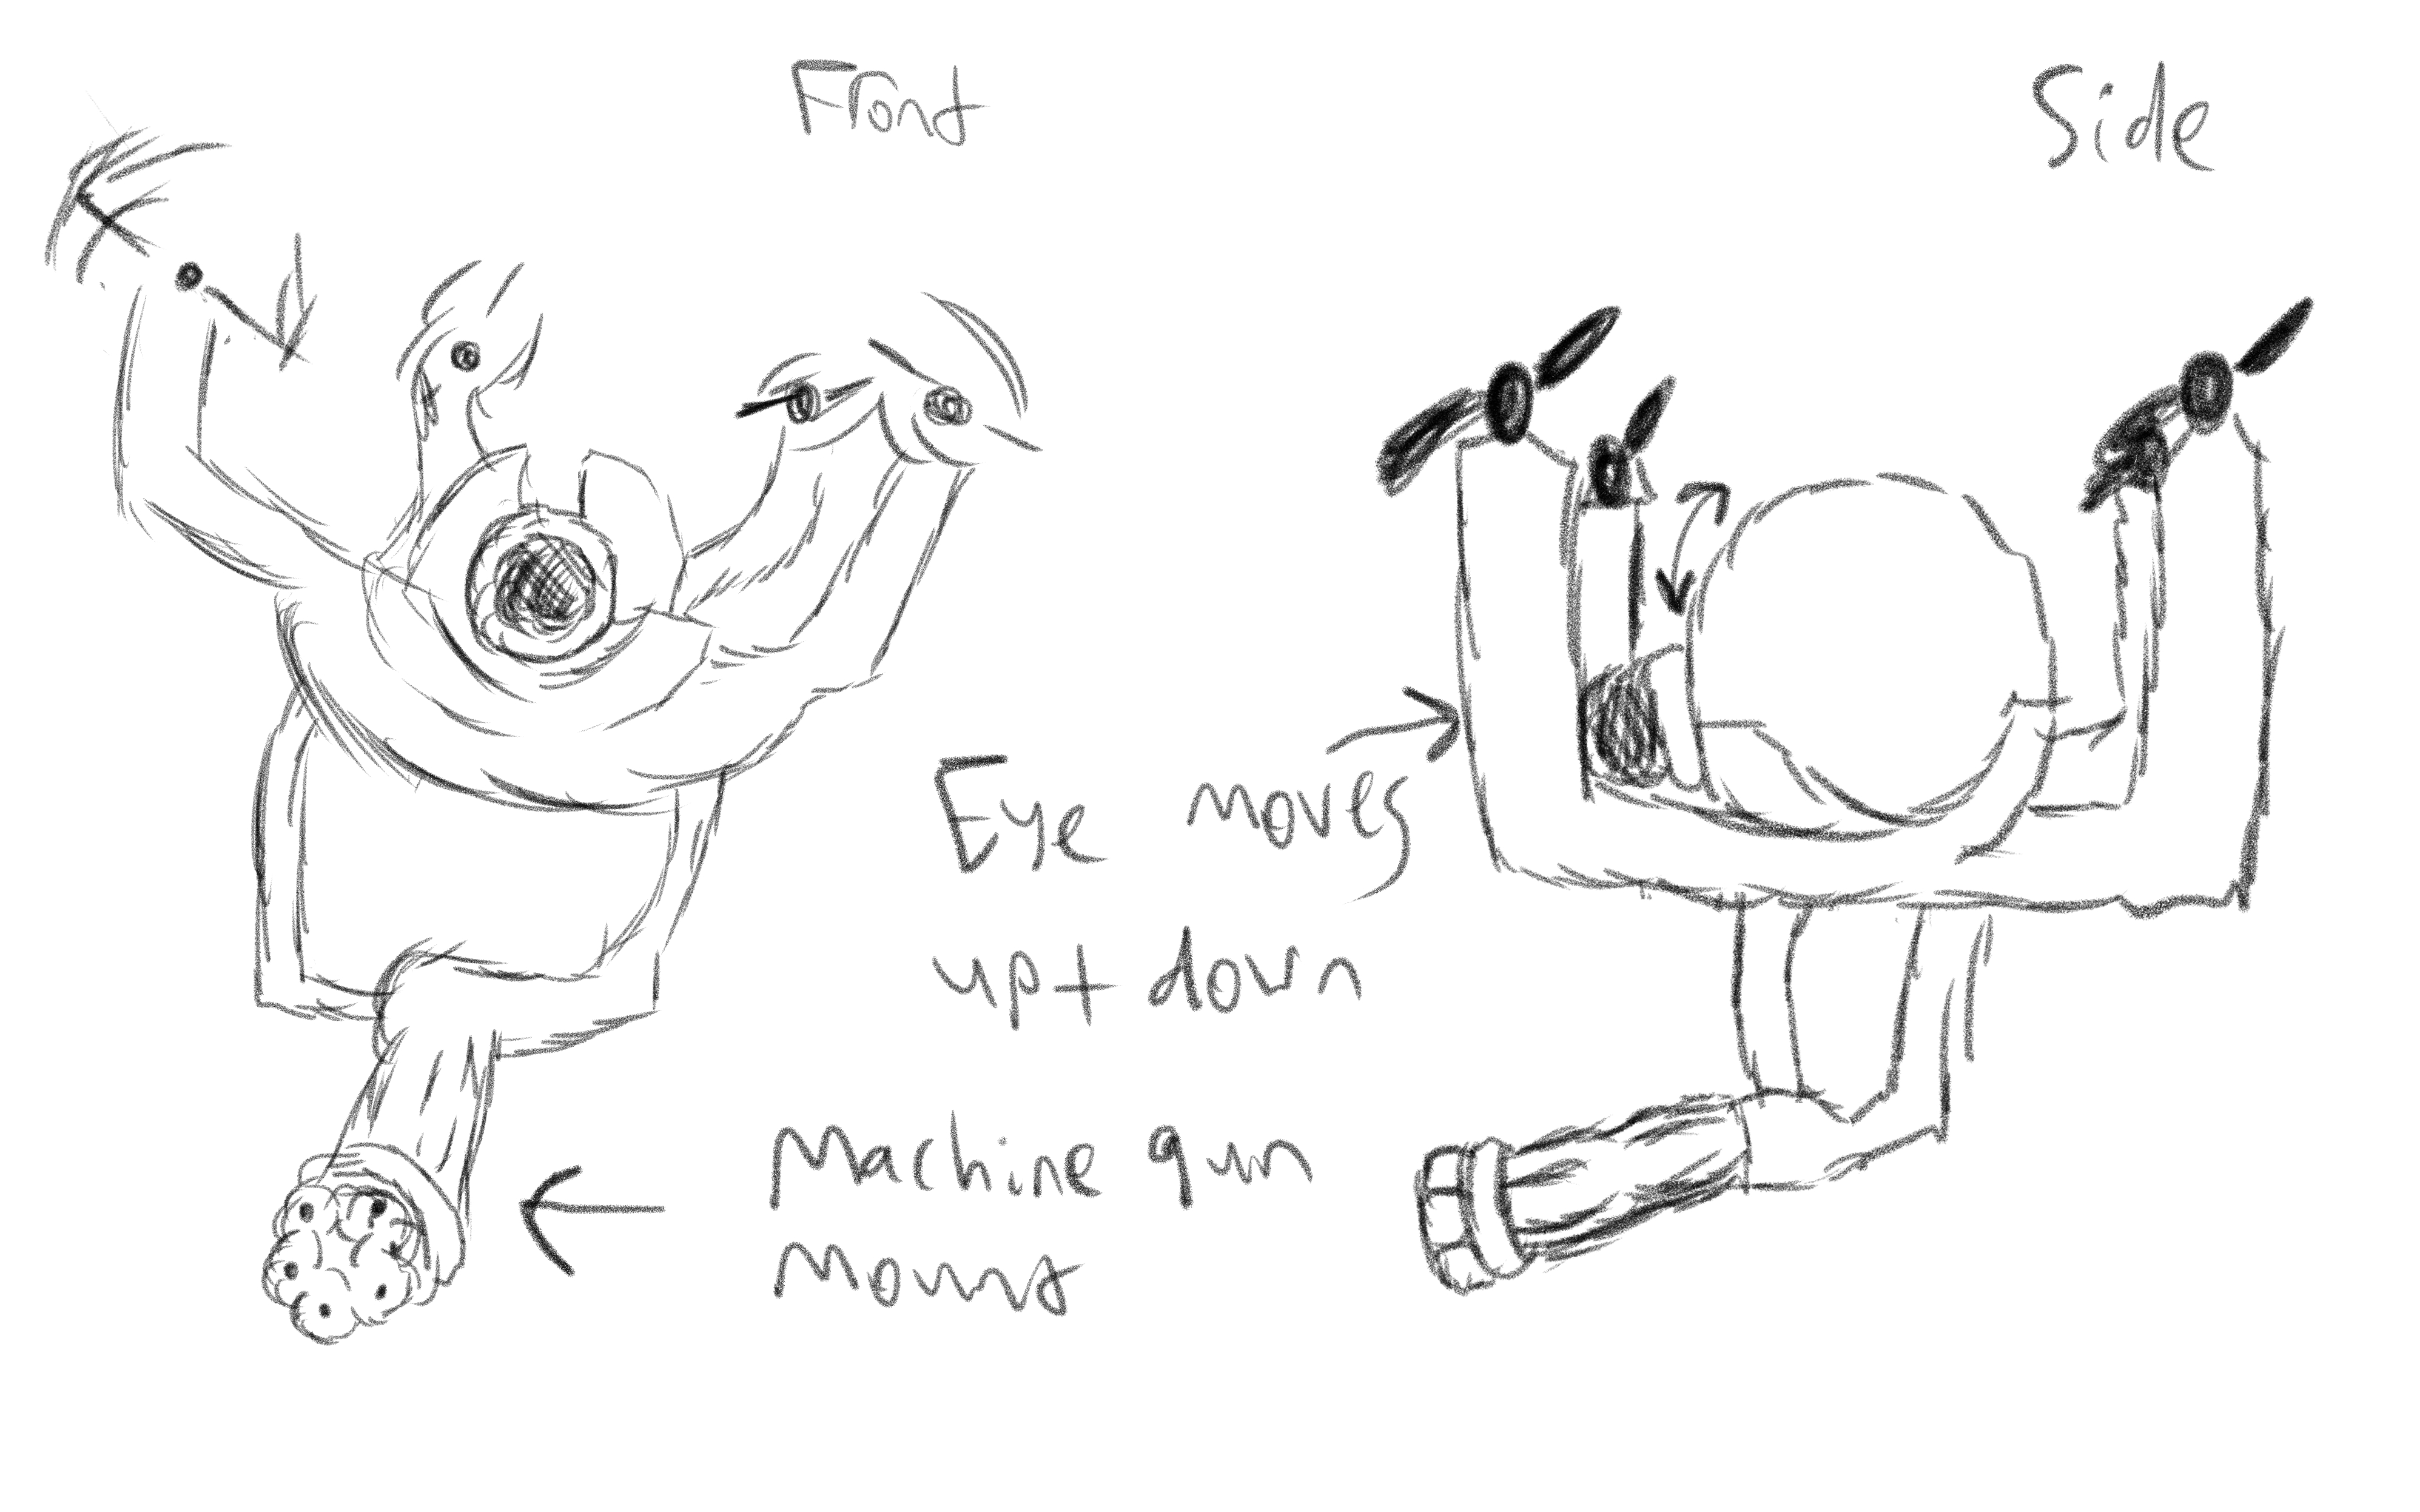 Front
Side
Eye moves
up+down
Machine gun
Mount